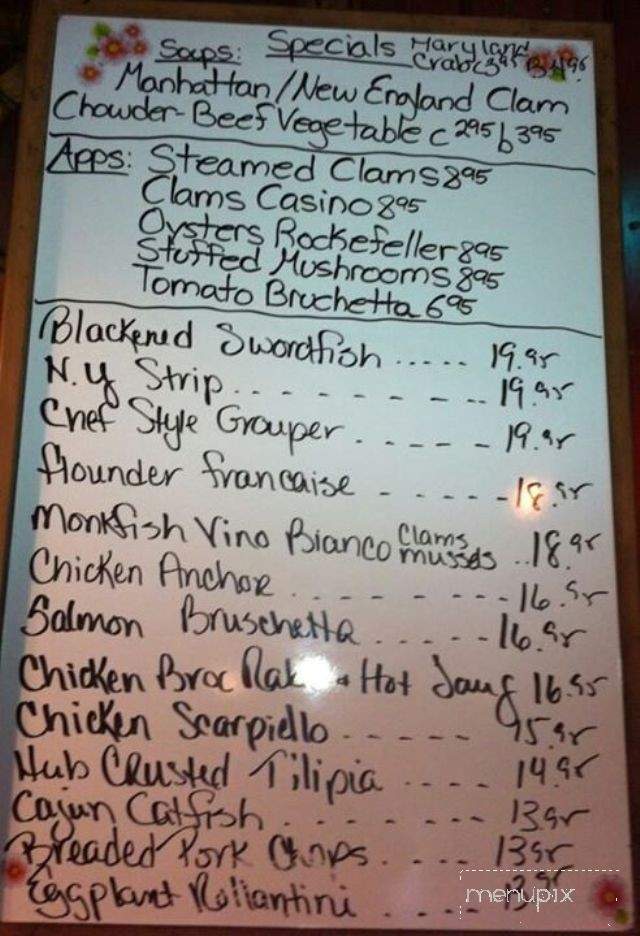 Soups: Specials Maryland
Crab c395 B 495
Manhattan/New England Clam
Chowder-Beef Vegetable c 295 b 395
Apps: Steamed Clams 895
Clams Casino 895
Oysters Rockefeller 895
Stuffed Mushrooms 895
Tomato Bruchetta 695
Blackened Swordfish ..... 19.95
N.y Strip. - - - - - - - .. 19.95
Chef Style Grouper. - - - - 19.95
flounder francaise - - - - - 18.95
Monkfish Vino Bianco Clams musses .. 18.95
Chicken Anchor . - - - - - - - - 16.95
Salmon Bruschetta . - - - - - 16.95
Chicken Broc Hot 16.95
Chicken Scarpiello - - - - - 15.95
Hub Crusted Tilipia - - - - 14.95
Cajun Catfish . - - - - - - - 1395
Breaded Pork Chops. . - - - 1395
Eggplant Rollantini . - - - 1395
menupix